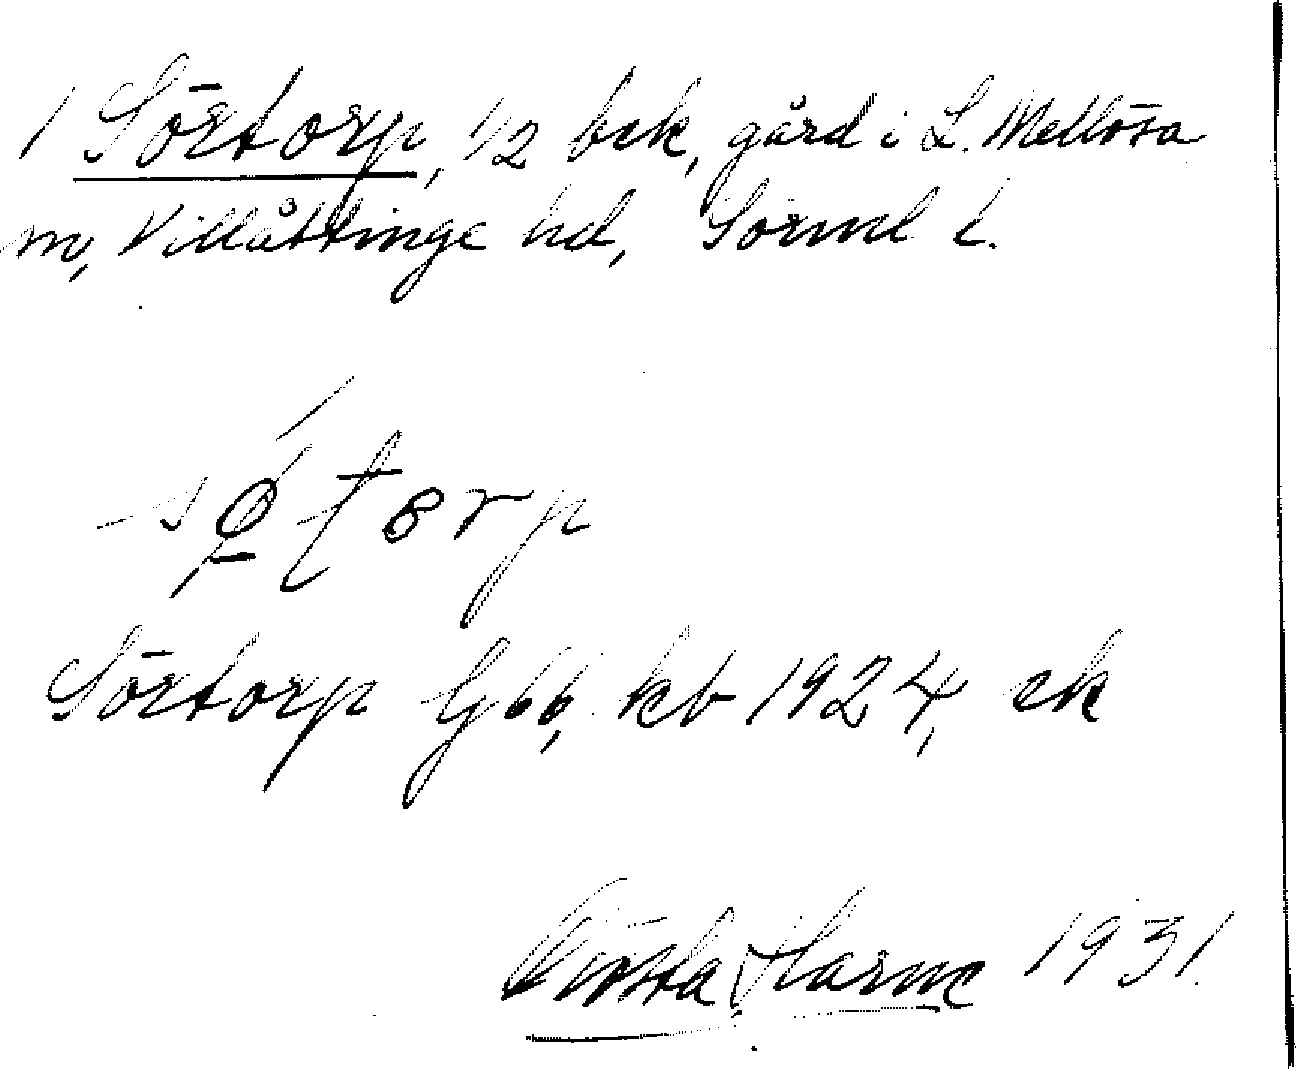 1 Sörtorp, 1/2 bck, gård i L. Mellösa
sn, Villåttinge hd, Sörml l.
Sörtorp G 66, kb 1924, ek
Gösta Harne 1931.